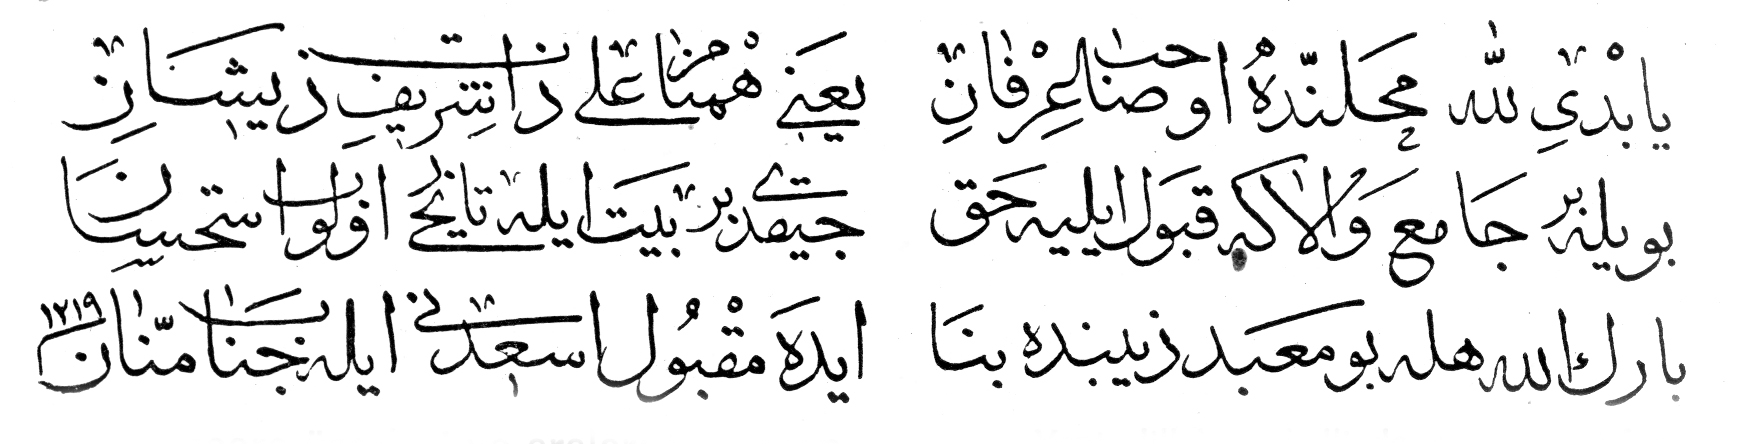 يابدي لله محلنده او صاحب عرفان
يعني همنام علي ذات شريف ذيشان
بويله بر جامع والا كه قبول ايليه حق
جيقدي بر بيت ايله تاريخ اولوب استحسان
بارك الله هله بو معبد زيبنده بنا
ايده مقبول ايله جناب منان ١٢١٩